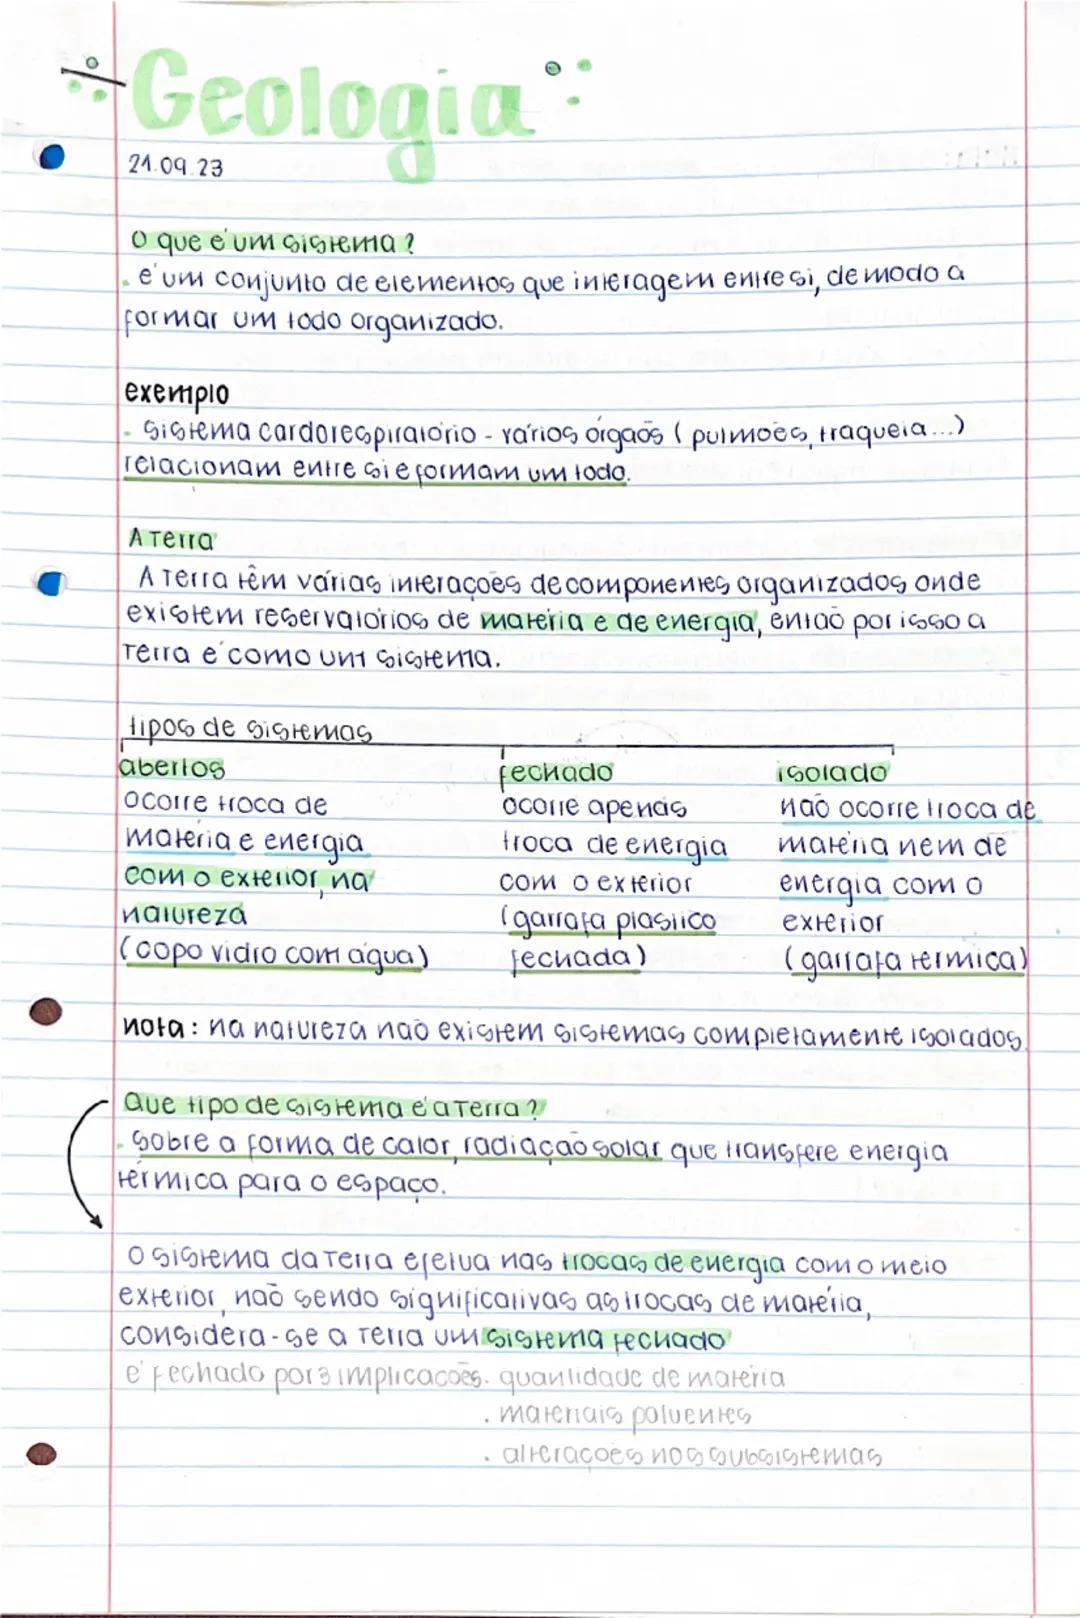 Geologia
21.09.23
O que é um sistema?
. é um conjunto de elementos que interagem entre si, de modo a
formar um todo organizado.
exemplo
- sistema cardorespiratório - vários órgãos ( pulmões, traqueia...)
relacionam entre si e formam um todo.
A Terra
A Terra têm várias interações de componentes organizados, onde
existem reservatórios de matéria e de energia, então por isso a
Terra é como um sistema.
tipos de sistemas
abertos fechado isolado
ocorre troca de ocorre apenas não ocorre troca de
matéria e energia troca de energia matéria nem de
com o exterior, na com o exterior energia com o
natureza (garrafa plastico exterior
(copo vidro com água) fechada) (garrafa térmica)
nota: na natureza não existem sistemas completamente isolados.
Que tipo de sistema é a Terra?
. Sobre a forma de calor, radiação solar que transfere energia
térmica para o espaço.
O sistema da Terra efetua nas trocas de energia com o meio
exterior, não sendo significativas as trocas de matéria,
considera-se a Terra um sistema fechado
é fechado por 3 implicações. quantidade de matéria
. materiais poluentes
. alterações nos subsistemas